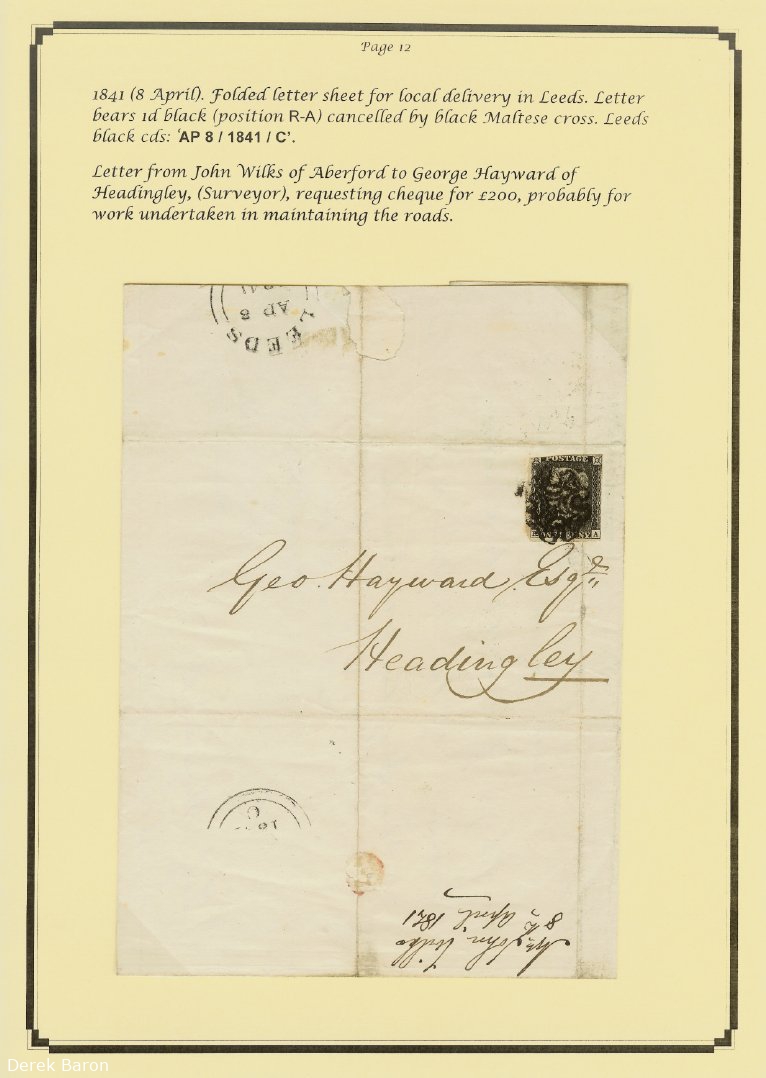 Page 12
1841 (8 April). Folded letter sheet for local delivery in Leeds. Letter
bears 1d black (position R-A) cancelled by black Maltese cross. Leeds
black cds: ‘AP 8 / 1841 / C’.
Letter from John Wilks of Aberford to George Hayward of
Headingley, (Surveyor), requesting cheque for £200, probably for
work undertaken in maintaining the roads.
LEEDS
AP 8
POSTAGE
A
Geo. Hayward Esqre
Headingley
C
Mr John Wilks
8th April 1841
Derek Baron